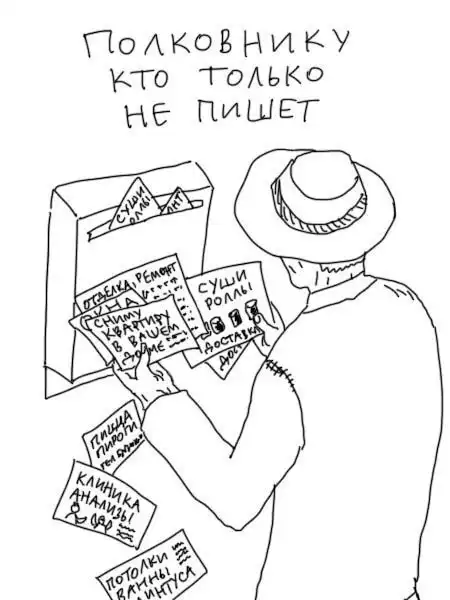 ПОЛКОВНИКУ
КТО ТОЛЬКО
НЕ ПИШЕТ
СУШИ
РОЛЛЫ
ОТДЕЛКА, РЕМОНТ
СНИМУ
КВАРТИРУ
В ВАШЕМ
ДОМЕ
СУШИ
РОЛЛЫ
ДОСТАВКА
ПИЦЦА
ПИРОГИ
КЛИНИКА
АНАЛИЗЫ
ПОТОЛКИ
ВАННЫ